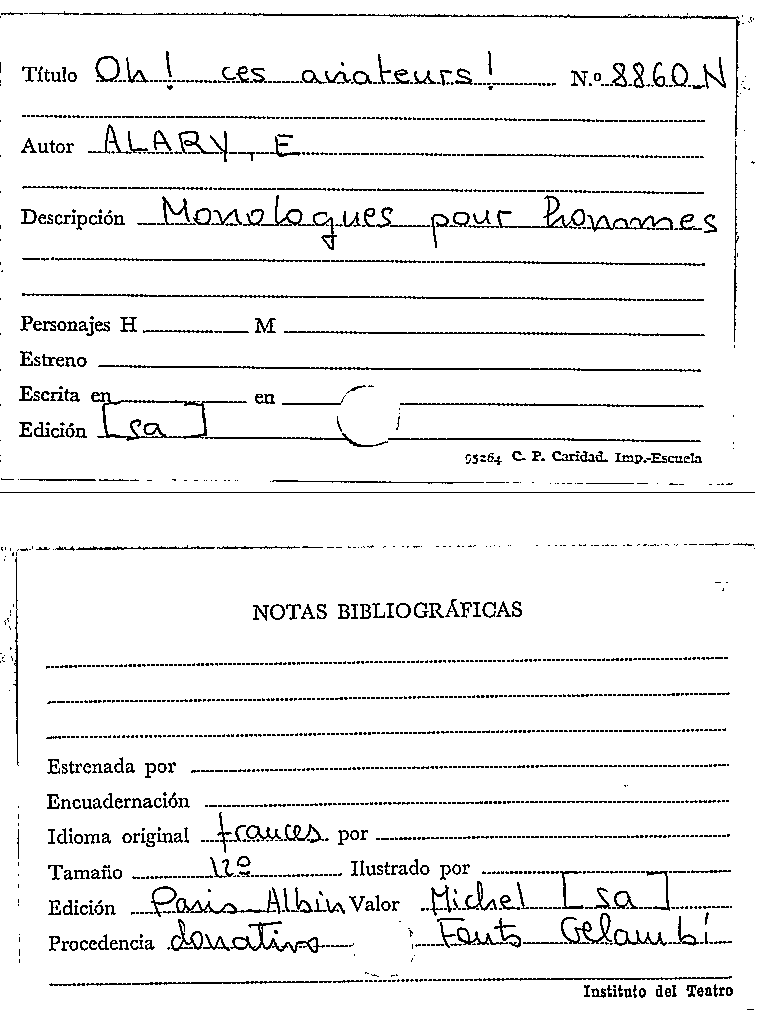 Título Oh! ces aviateurs! N.º 8860-N
Autor ALARY, E
Descripción Monologues pour hommes
Personajes H M
Estreno
Escrita en en
Edición [sa]
95264 C. P. Caridad. Imp.-Escuela
NOTAS BIBLIOGRÁFICAS
Estrenada por
Encuadernación
Idioma original frances por
Tamaño 12º Ilustrado por
Edición Paris Albin Valor Michel [sa]
Procedencia donativo Fonts Gelambí
Instituto del Teatro